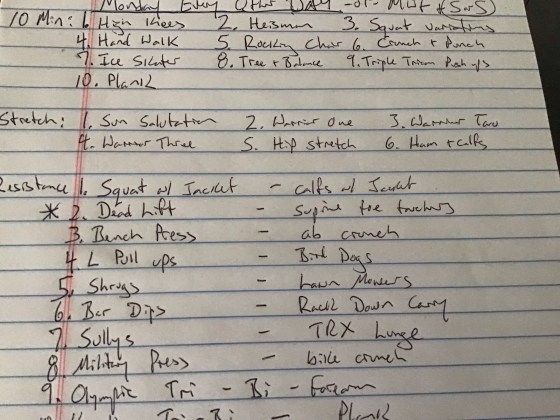 Monday Every Other Day - or MWF & (S or S)
10 Min: 1. High Knees 2. Heisman 3. Squat variations
4. Hand Walk 5. Rocking Chair 6. Crunch + Punch
7. Ice Skater 8. Tree + Balance 9. Triple Push ups
10. Plank
Stretch: 1. Sun Salutation 2. Warrior One 3. Warrior Two
4. Warrior Three 5. Hip Stretch 6. Ham + calfs
Resistance 1. Squat w/ Jacket - calfs w/ Jacket
* 2. Dead Lift - Supine toe touchers
3. Bench Press - ab crunch
4. L Pull ups - Bird Dogs
5. Shrugs - Lawn Mowers
6. Bar Dips - Rack Down Carry
7. Sullys - TRX Lunge
8 Military Press - bike crunch
9. Olympic Tri - Bi - Forearm
Tri-Bi - Plank